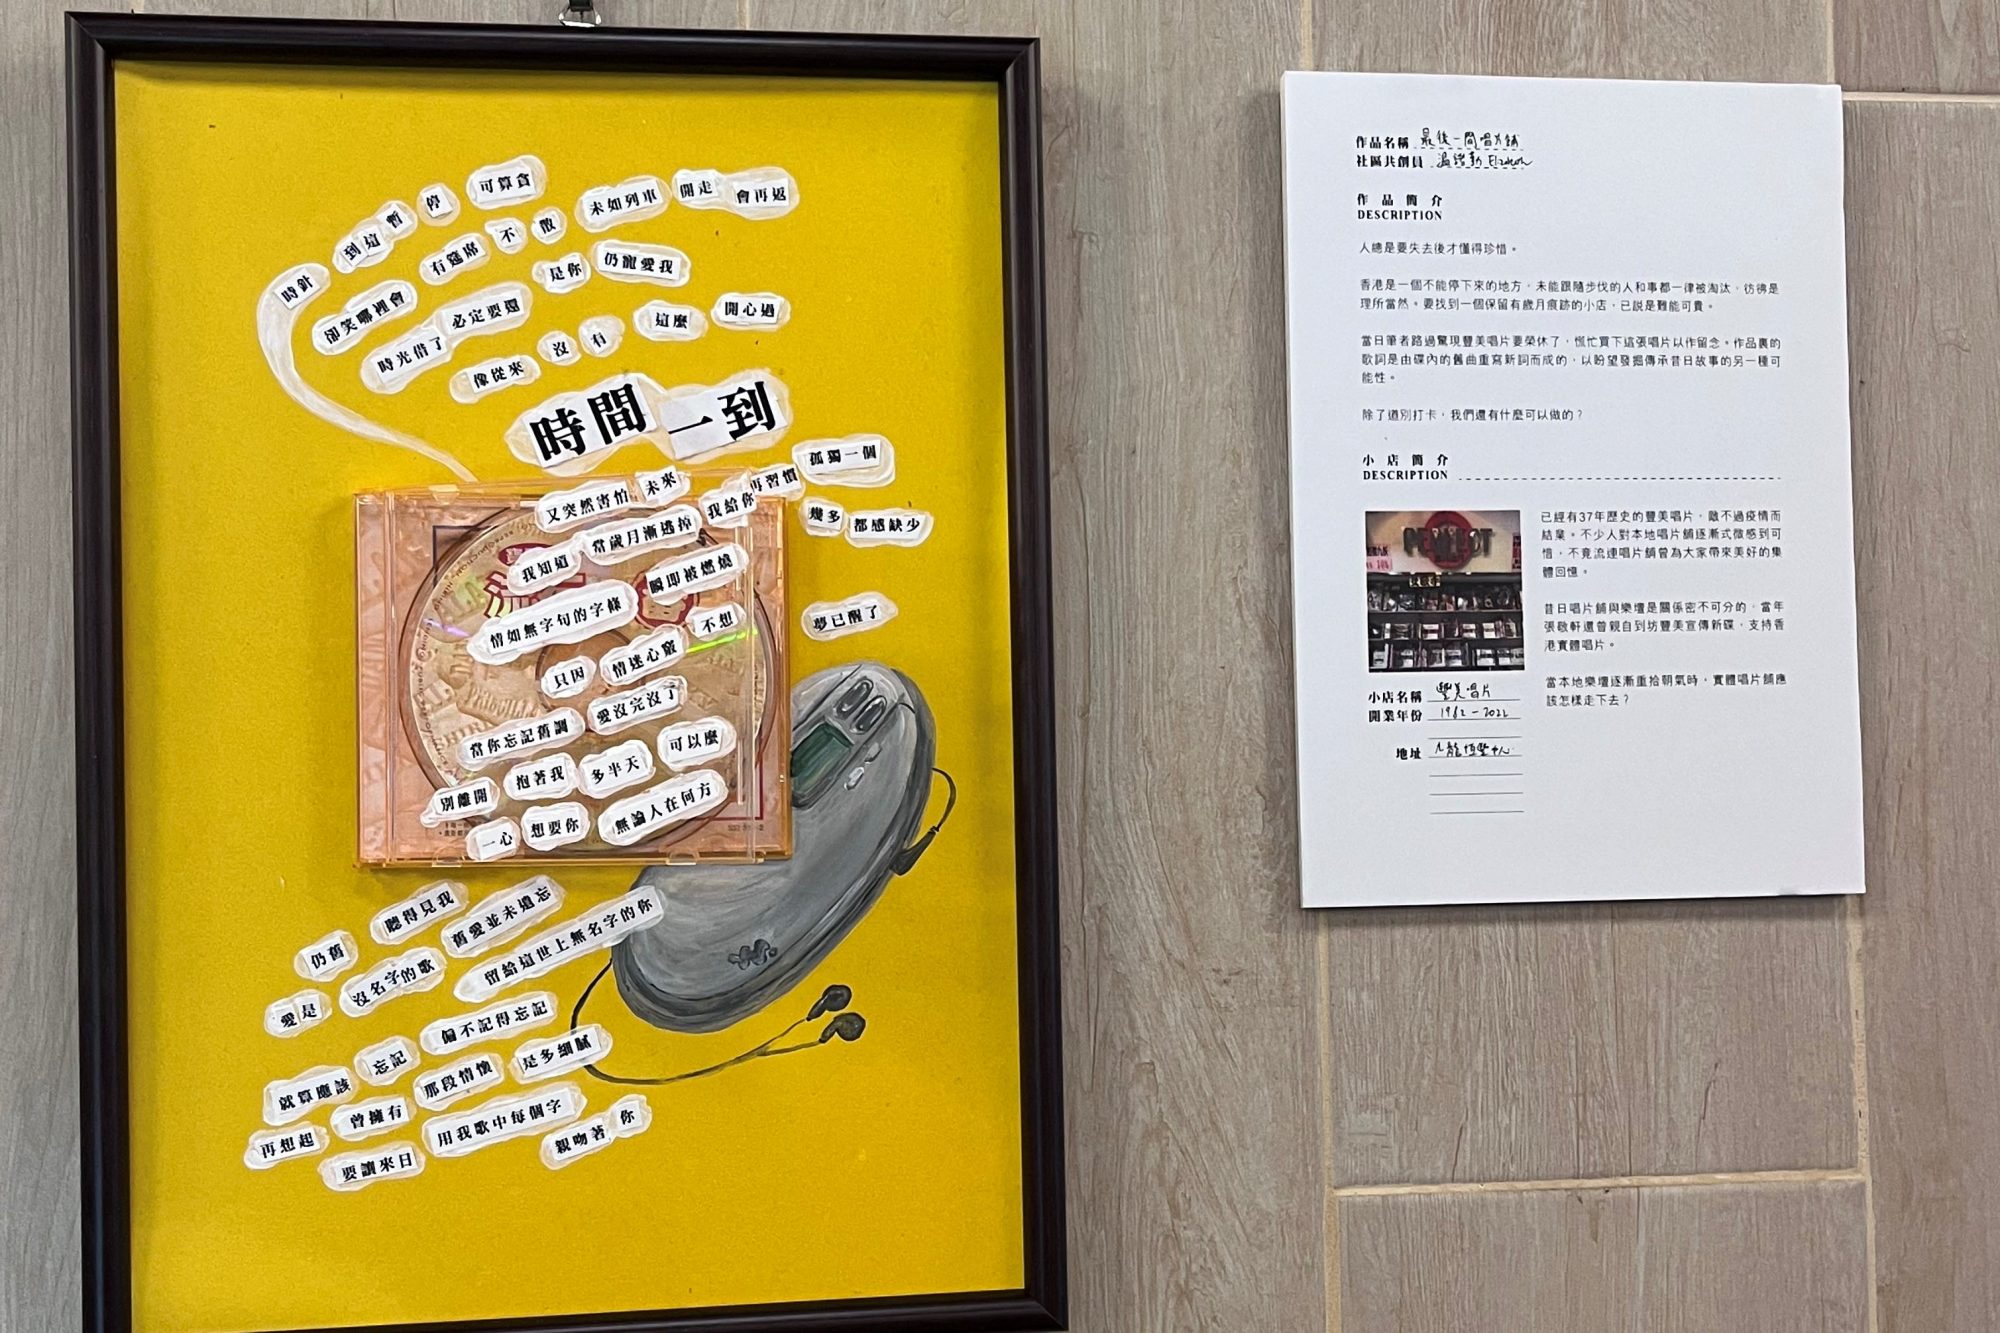 時針 到這 暫 停 可算貪
冇筵席 不 散 未如列車 開走 會再返
卻笑哪裡會 必定要還 是你 仍寵愛我
時光借了 像從來 沒 有 這麼 開心過
時間一到
又突然害怕 未來 再習慣 孤獨一個
我知道 當歲月漸逃掉 我給你 幾多 都感缺少
情如無字句的字條 瞬即被燃燒
只因 情迷心竅 不想 夢已醒了
當你忘記舊調 愛沒完沒了
別離開 抱著我 多半天 可以麼
一心 想要你 無論人在何方
仍舊 聽得見我 舊愛並未遺忘
愛是 沒名字的歌 留給這世上無名字的你
就算應該 忘記 偏不記得忘記
再想起 曾擁有 那段情懷 是多細膩
要讓來日 用我歌中每個字 親吻著 你
作品名稱 最後一間唱片舖
社區共創員 Elizabeth
作品簡介
DESCRIPTION
人總是要失去後才懂得珍惜。
香港是一個不能停下來的地方，未能跟隨步伐的人和事都一律被淘汰，彷彿是
理所當然。要找到一個保留有歲月痕跡的小店，已說是難能可貴。
當日筆者路過驚現豐美唱片要榮休了，慌忙買下這張唱片以作留念。作品裏的
歌詞是由碟內的舊曲重寫新詞而成的，以盼望發掘傳承昔日故事的另一種可
能性。
除了道別打卡，我們還有什麼可以做的？
小店簡介
DESCRIPTION
已經有37年歷史的豐美唱片，敵不過疫情而
結業。不少人對本地唱片舖逐漸式微感到可
惜，不竟流連唱片舖曾為大家帶來美好的集
體回憶。
昔日唱片舖與樂壇是關係密不可分的，當年
張敬軒還曾親自到坊豐美宣傳新碟，支持香
港實體唱片。
當本地樂壇逐漸重拾朝氣時，實體唱片舖應
該怎樣走下去？
小店名稱 豐美唱片
開業年份 1982-2022
地址 九龍恒豐中心